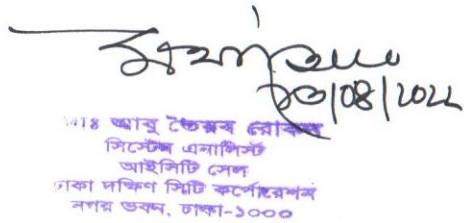 ১৩/০৪/২০২২
মোঃ আবু তৈয়ব রোকন
সিস্টেম এনালিস্ট
আইসিটি সেল
ঢাকা দক্ষিণ সিটি কর্পোরেশন
নগর ভবন, ঢাকা-১০০০